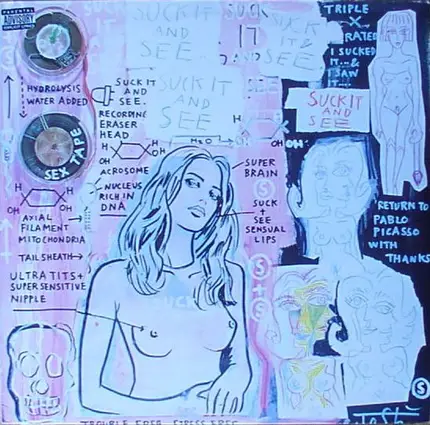 PARENTAL
ADVISORY
EXPLICIT LYRICS
SUCK IT
AND
SEE
SUCK
IT
SUCK
IT &
AND
SEE
TRIPLE
X
RATED
I SUCKED
IT...&
I SAW
IT...
HYDROLYSIS
WATER ADDED
SUCK IT
AND
SEE.
SUCK IT
AND
SEE
SUCK IT
AND
SEE
RECORDING
ERASER
HEAD
H2O
OH
HO
OH
SEX TAPE
ACROSOME
SUPER
BRAIN
S
NUCLEUS
RICH IN
DNA
SUCK
+
SEE
SENSUAL
LIPS
OH
OH
HO
AXIAL
FILAMENT
MITOCHONDRIA
RETURN TO
PABLO
PICASSO
WITH
THANKS
TAIL SHEATH
S
+
S
ULTRA TITS +
SUPER SENSITIVE
NIPPLE
SUCK
S
TROUBLE FREE STRESS FREE